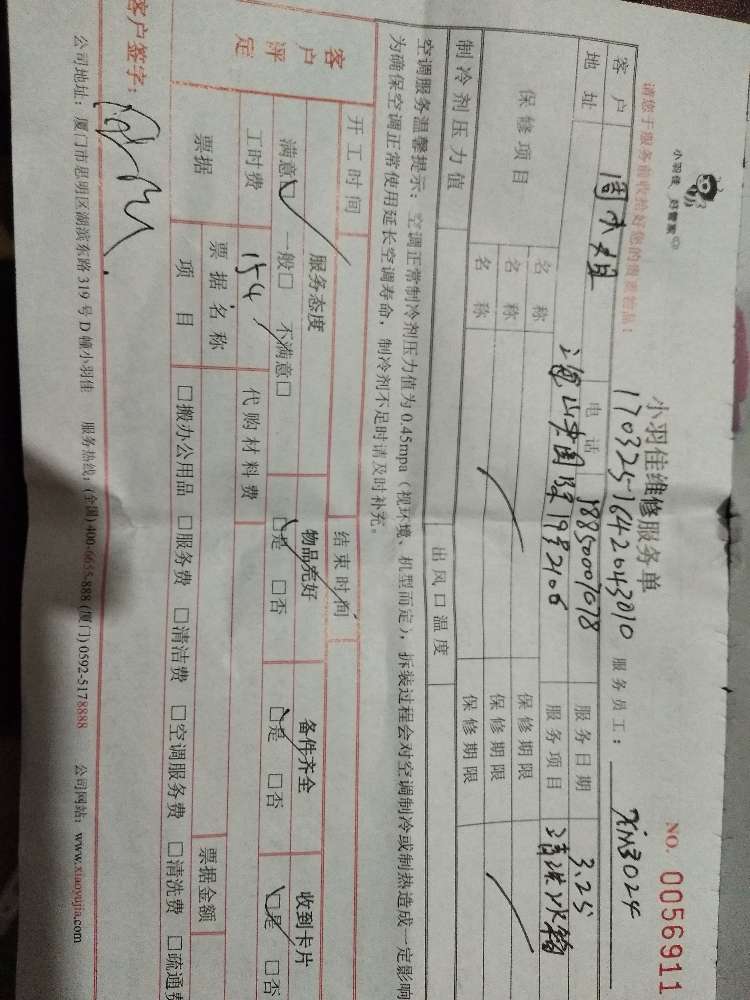 小羽佳 好管家
小羽佳维修服务单
NO. 0056911
请您于服务前收拾好您的贵重物品!
1703251642043010
服务员工:
XM3024
客户
周大姐
电话
18850001078
服务日期
3.25
地址
服务项目
清洗冰箱
保修项目
名称
保修期限
名称
保修期限
名称
保修期限
制冷剂压力值
出风口温度
空调服务温馨提示:空调正常制冷剂压力值为0.45mpa(视环境、机型而定),拆装过程会对空调制冷或制热造成一定影响
为确保空调正常使用延长空调寿命,制冷剂不足时请及时补充。
开工时间
结束时间
客户评定
服务态度
物品完好
备件齐全
收到卡片
满意□ 一般□ 不满意□
□是 □否
□是 □否
□是 □否
工时费
154
代购材料费
票据
票据名称
票据金额
项目
□搬办公用品 □服务费 □清洁费 □空调服务费 □清洗费 □疏通费
客户签字:
公司地址:厦门市思明区湖滨东路319号D幢小羽佳 服务热线:(全国)400-6655-888 (厦门)0592-5178888 公司网站:www.xiaoyujia.com